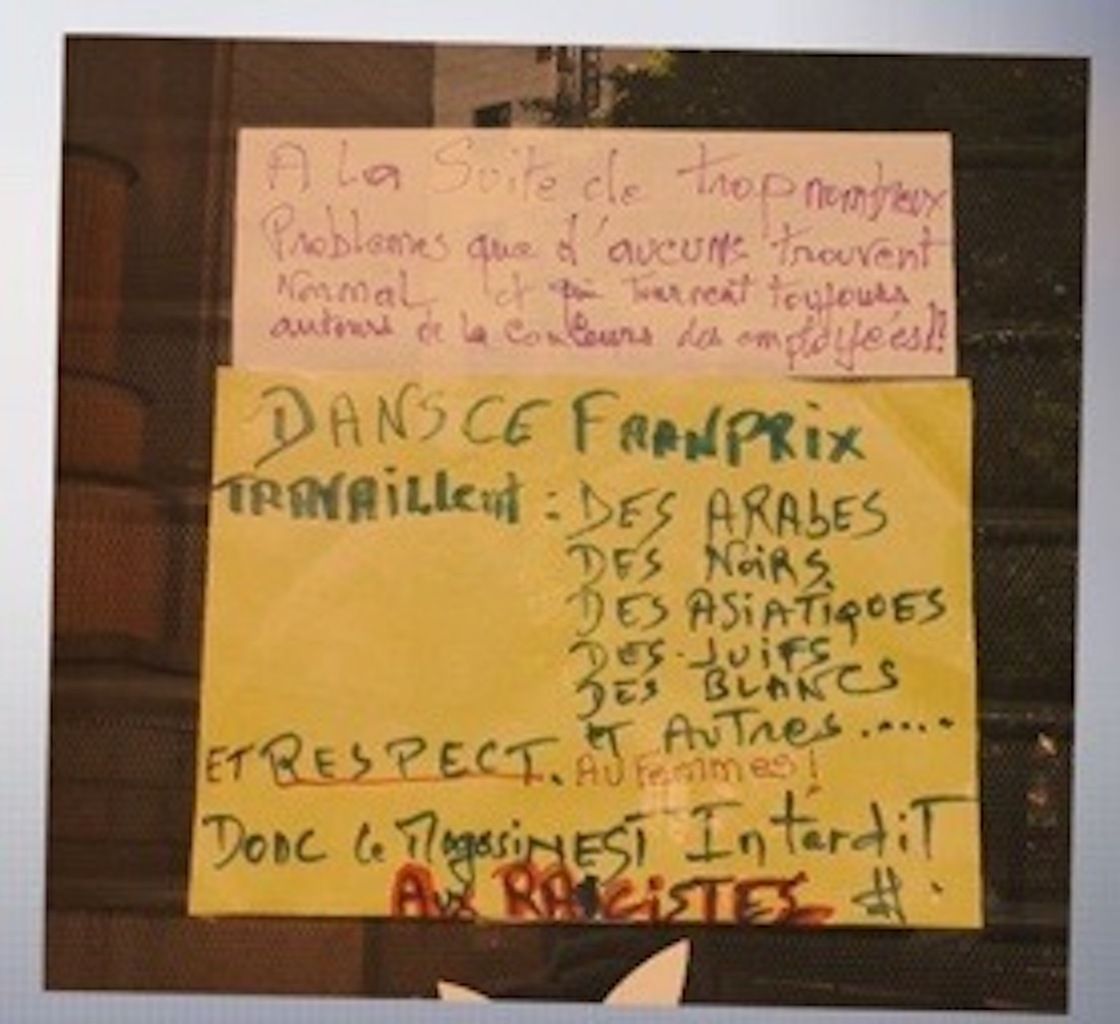 A La Suite de trop nombreux
Problemes que d'aucuns trouvent
Normal et qui Tournent toujours
autours de la couleurs des employées!!
DANS CE FRANPRIX
TRAVAILLent : DES ARAbES
DES NoiRS
DES ASiATiQUES
DES JUiFS
DES BLANCS
ET AUTRES.....
ET RESPECT. AU Femmes!
DONC Le MagasiN EST InterdiT
Aux RACiSTES